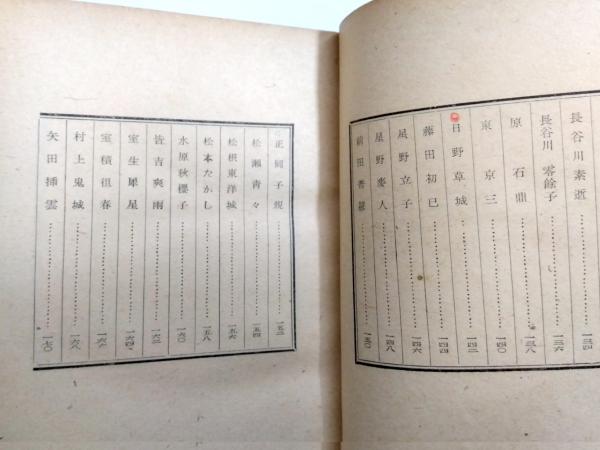 長谷川素逝…………一三四
長谷川零餘子…………一三六
原石鼎…………一三八
東京三…………一四〇
日野草城…………一四二
藤田初巳…………一四四
星野立子…………一四六
星野麥人…………一四八
前田普羅…………一五〇
正岡子規…………一五二
松瀬青々…………一五四
松根東洋城…………一五六
松本たかし…………一五八
水原秋櫻子…………一六〇
皆吉爽雨…………一六二
室生犀星…………一六四
室積徂春…………一六六
村上鬼城…………一六八
矢田挿雲…………一七〇